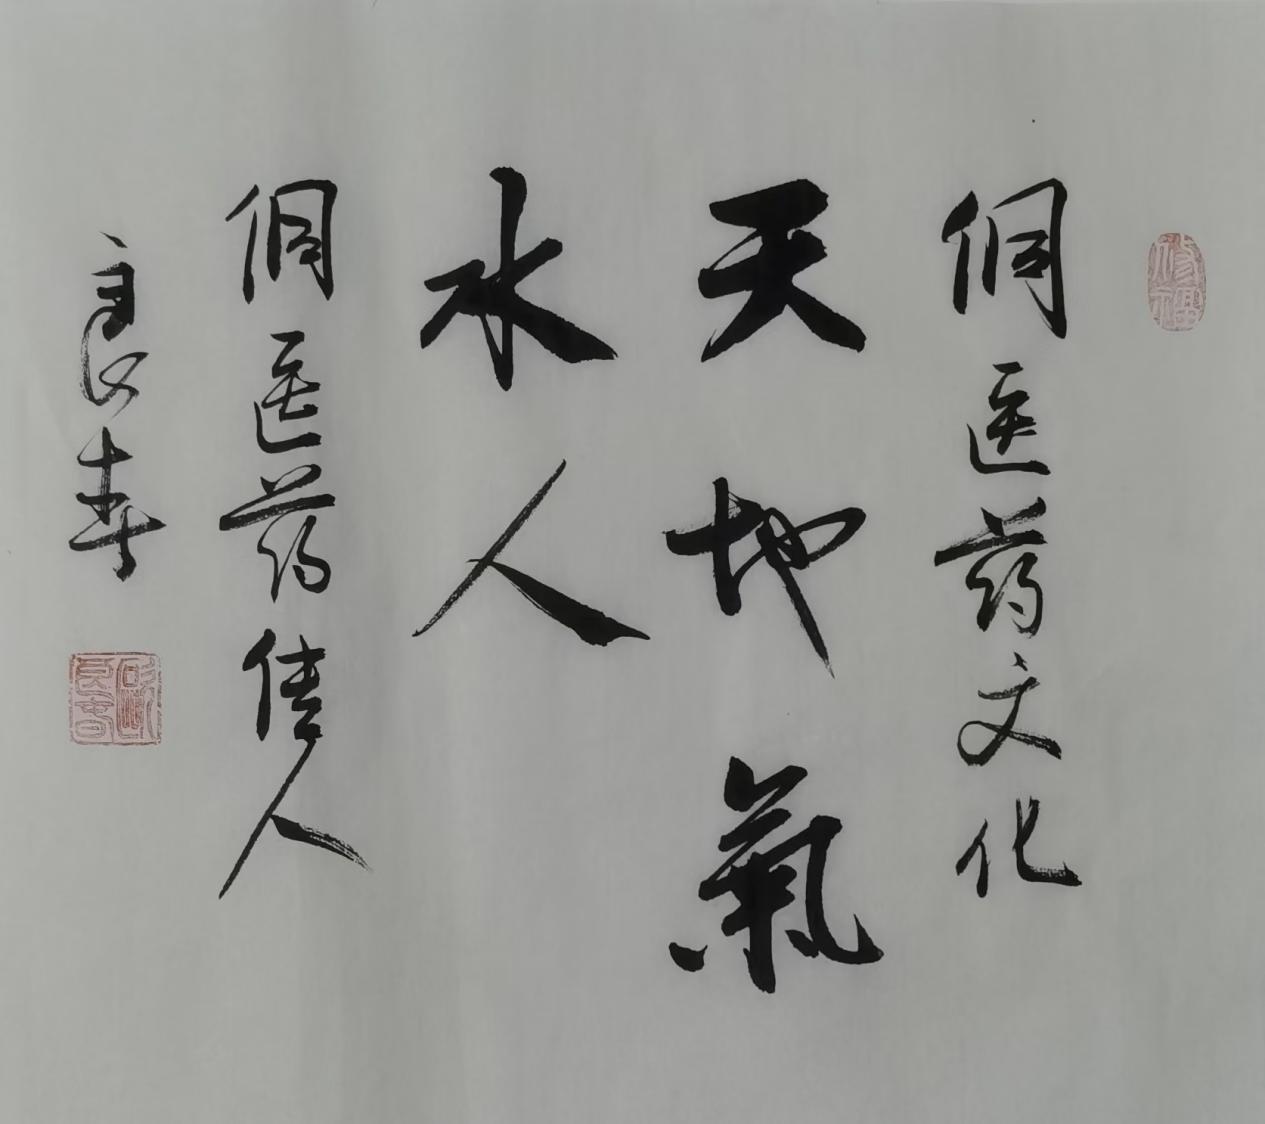 侗医药文化
天地氣
水人
侗医药人
良